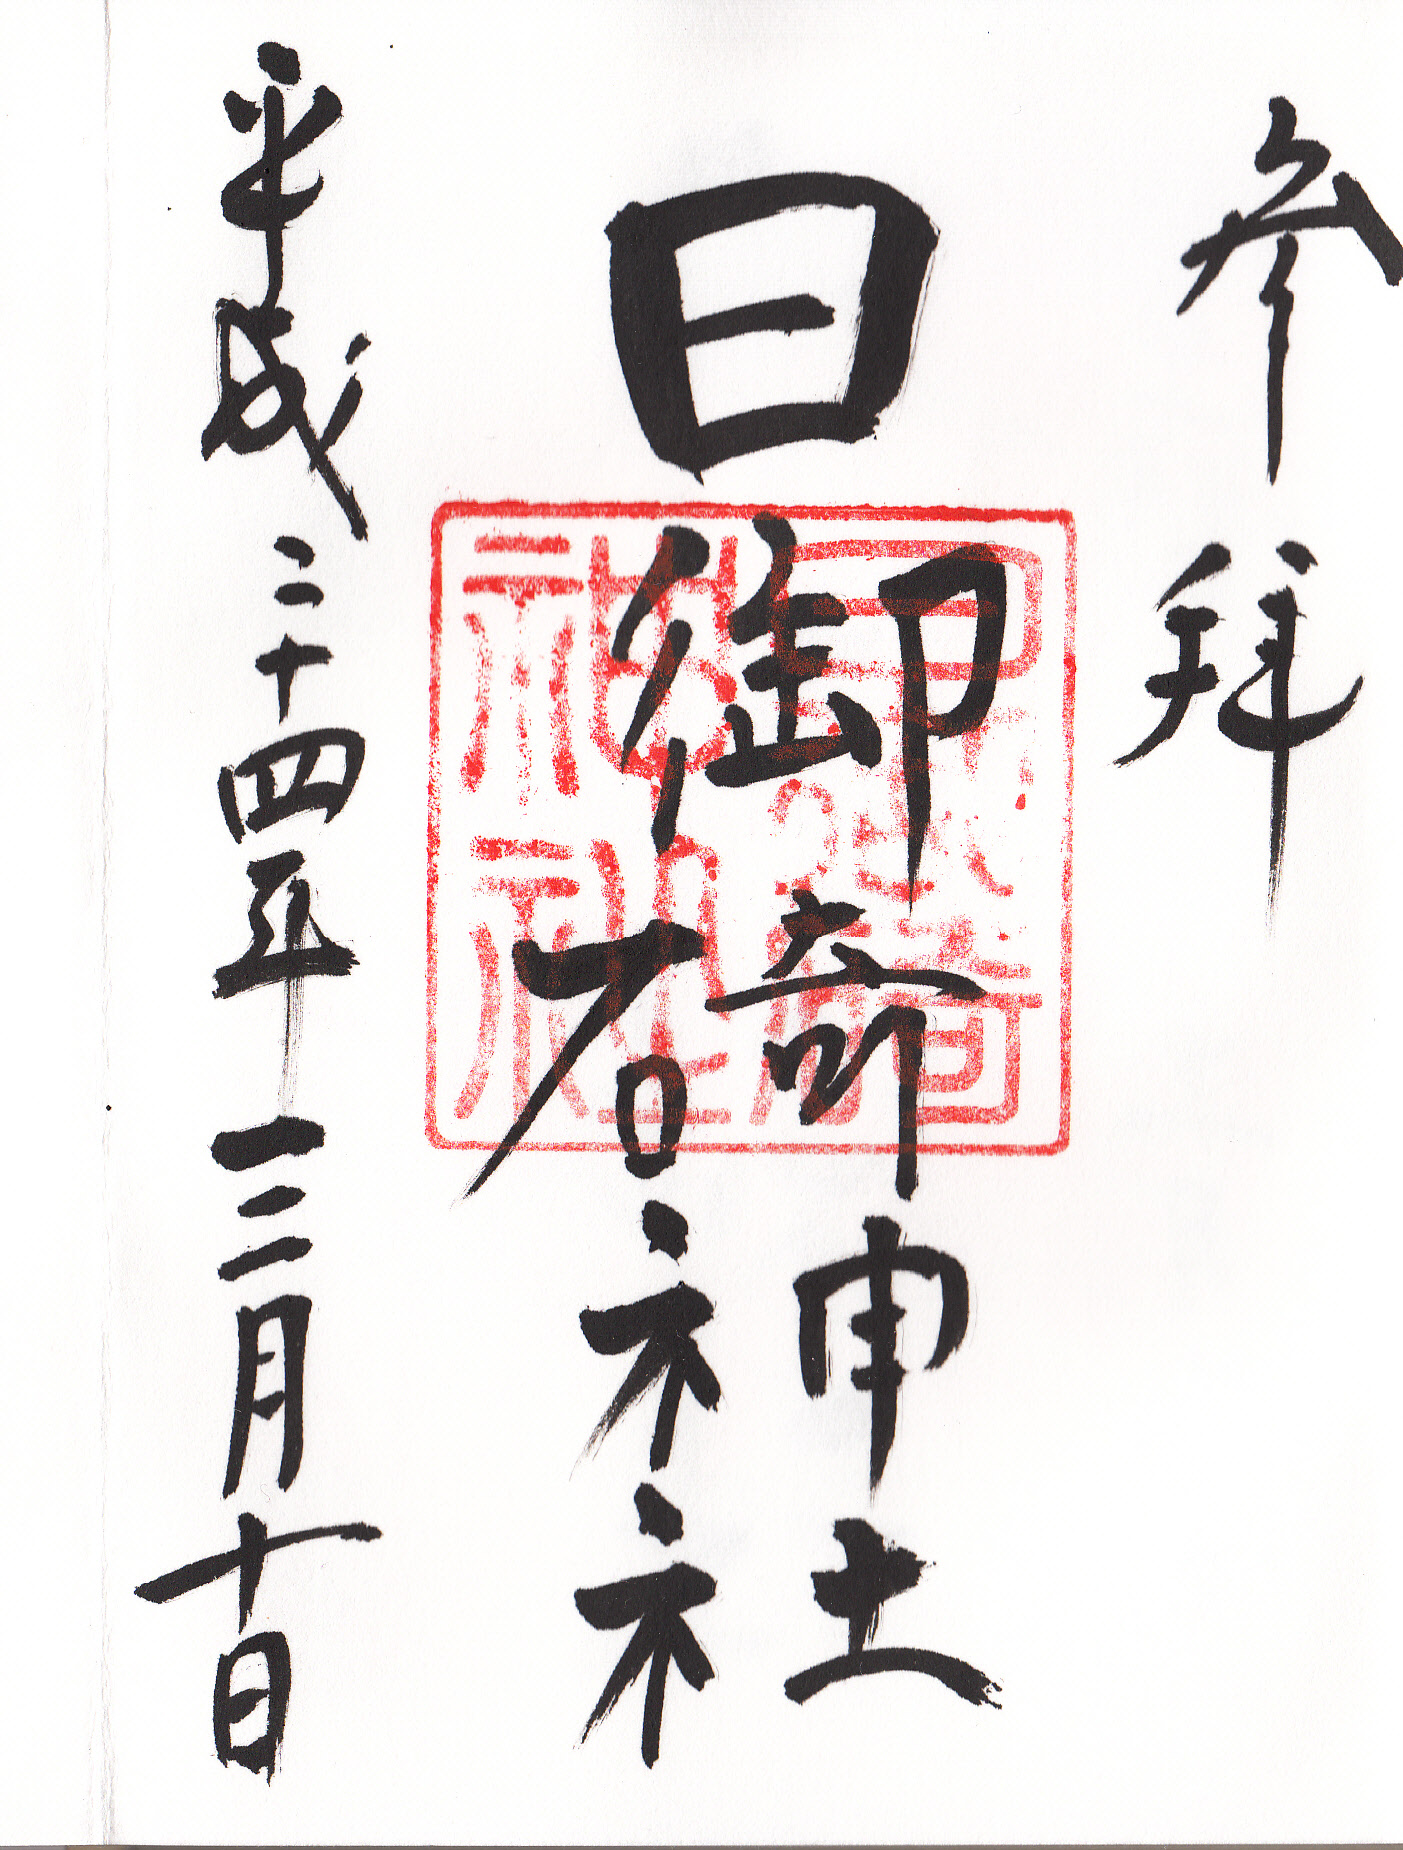 参拝
日御碕神社
日御碕
神社
平成二十四年三月十日